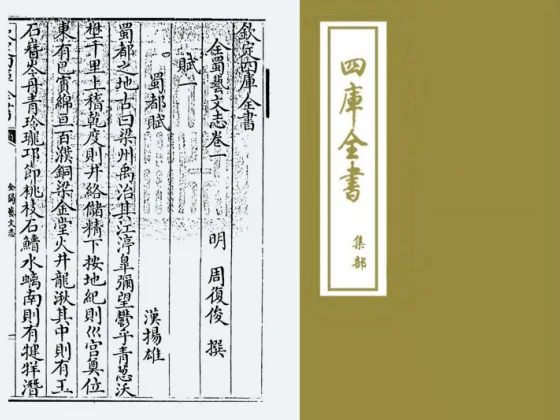 欽定四庫全書
全蜀藝文志卷一 明 周復俊 撰
賦一
蜀都賦 漢揚雄
蜀都之地古曰梁州禹治其江渟皐彌望鬱乎青葱沃
壄千里上稽乾度則井絡儲精下按地紀則巛宫奠位
東有巴賨綿亘百濮銅梁金堂火井龍湫其中則有玉
石嶜岑丹青玲瓏邛節桃枝石鰌水螭南則有犍牂潛
全蜀藝文志
四庫全書
集部